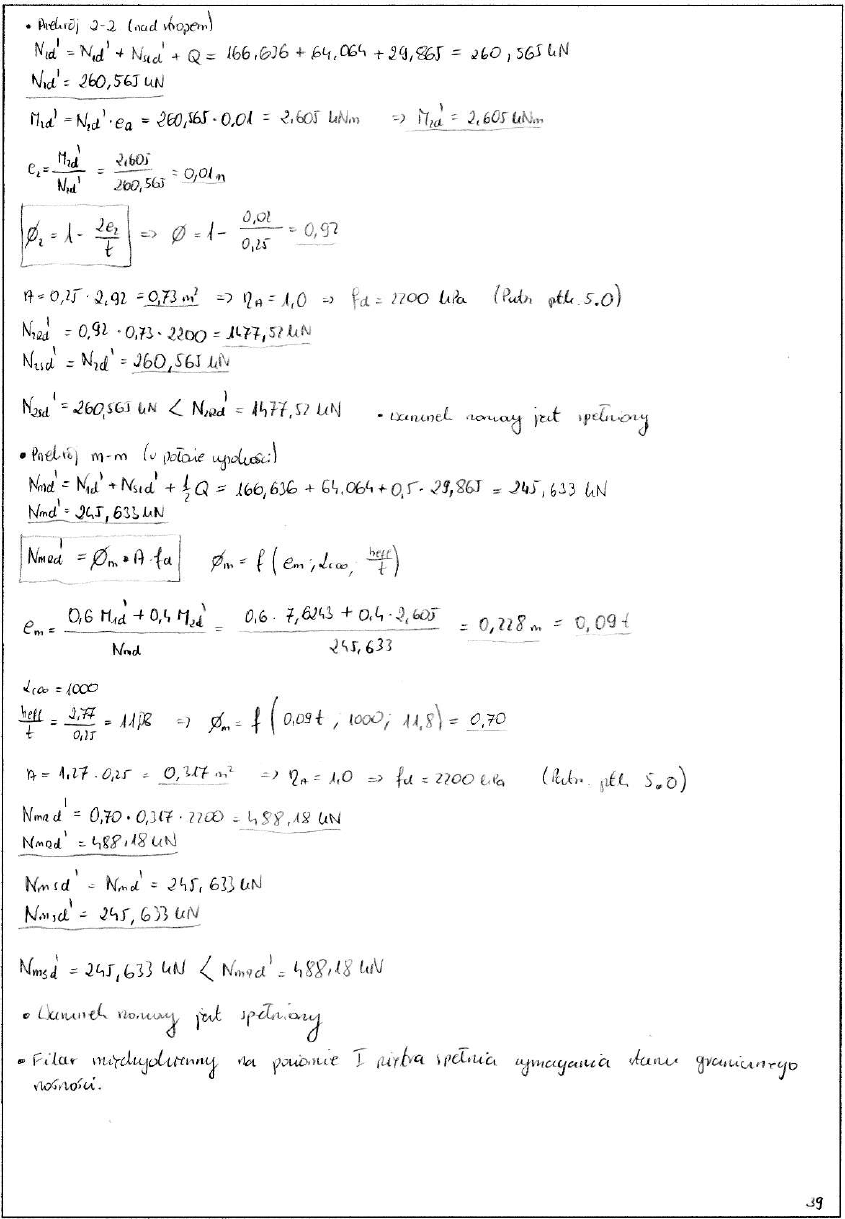 • Przekrój 2-2 (nad stropem)
N₂d' = N₁d' + Nsld' + Q = 166,636 + 64,064 + 29,865 = 260,565 kN
N₂d' = 260,565 kN
M₂d' = N₂d' · ea = 260,565 · 0,01 = 2,605 kNm => M₂d' = 2,605 kNm
e₂ = M₂d' / N₂d' = 2,605 / 260,565 = 0,01 m
Ø₂ = 1 - 2e₂/t => Ø = 1 - 0,02/0,25 = 0,92
A = 0,25 · 2,92 = 0,73 m² => ηA = 1,0 => fd = 2200 kPa (Patrz pkt. 5.0)
N₂Rd' = 0,92 · 0,73 · 2200 = 1477,52 kN
N₂sd' = N₂d' = 260,565 kN
N₂sd' = 260,565 kN < N₂Rd' = 1477,52 kN • Warunek normowy jest spełniony
• Przekrój m-m (w połowie wysokości)
Nmd' = N₁d' + Nsld' + ½Q = 166,636 + 64,064 + 0,5 · 29,865 = 245,633 kN
Nmd' = 245,633 kN
NmRd' = Øm · A · fd Øm = f (em ; α∞ ; heff/t)
em = (0,6 M₁d' + 0,4 M₂d') / Nmd = (0,6 · 7,6243 + 0,4 · 2,605) / 245,633 = 0,228 m = 0,09 t
α∞ = 1000
heff/t = 2,77/0,25 = 11,8 => Øm = f (0,09t ; 1000 ; 11,8) = 0,70
A = 1,27 · 0,25 = 0,317 m² => ηA = 1,0 => fd = 2200 kPa (Patrz pkt. 5.0)
NmRd' = 0,70 · 0,317 · 2200 = 488,18 kN
NmRd' = 488,18 kN
Nmsd' = Nmd' = 245,633 kN
Nmsd' = 245,633 kN
Nmsd' = 245,633 kN < NmRd' = 488,18 kN
• Warunek normowy jest spełniony
• Filar międzydrzwiowy na poziomie I piętra spełnia wymagania stanu granicznego
nośności.
39